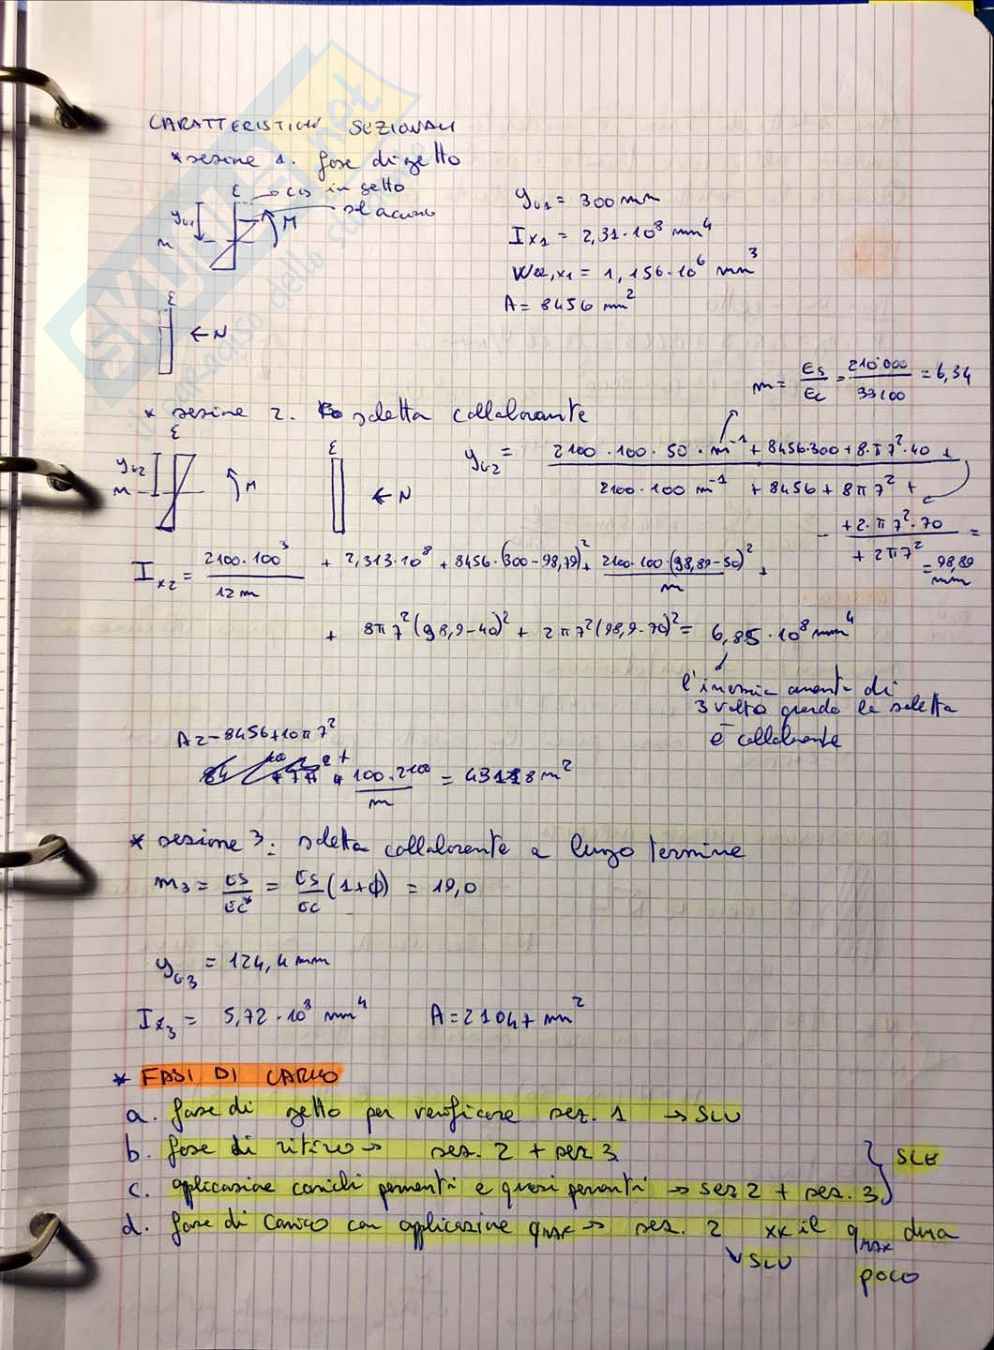 CARATTERISTICHE SEZIONALI
* sezione 1. fase di getto
ε → cls in getto
yG1
M
sol acciaio
n
yG1 = 300 mm
Ix1 = 2,31·10⁸ mm⁴
Wel,x1 = 1,156·10⁶ mm³
A = 8456 mm²
ε
← N
m = Es/Ec = 210'000/33100 = 6,34
* sezione 2. soletta collaborante
ε
yG2
n
M
ε
← N
yG2 = (2100·100·50·m⁻¹ + 8456·300 + 8·π7²·40 +
2100·100 m⁻¹ + 8456 + 8π7² +
+2·π7²·70 =
+ 2π7²
= 98,89 mm
Ix2 = 2100·100³/12m + 2,313·10⁸ + 8456·(300-98,79)² + 2100·100·(98,89-50)²/m +
+ 8π7²(98,9-40)² + 2π7²(98,9-70)² = 6,85·10⁸ mm⁴
l'inerzia aumenta di
3 volte quando la soletta
è collaborante
A2 = 8456+10π7² +
100·2100/m = 43118 m²
* sezione 3: soletta collaborante a lungo termine
m3 = Es/Ec* = Es/Ec (1+ϕ) = 19,0
yG3 = 124,4 mm
Ix3 = 5,72·10⁸ mm⁴ A = 21047 mm²
* FASI DI CARICO
a. fase di getto per verificare sez. 1 → SLU
b. fase di ritiro → sez. 2 + sez 3
SLE
c. applicazione carichi permanenti e quasi permanenti → sez 2 + sez. 3
d. fase di carico con applicazione qmax → sez. 2 xk il qmax dura
SLU
poco